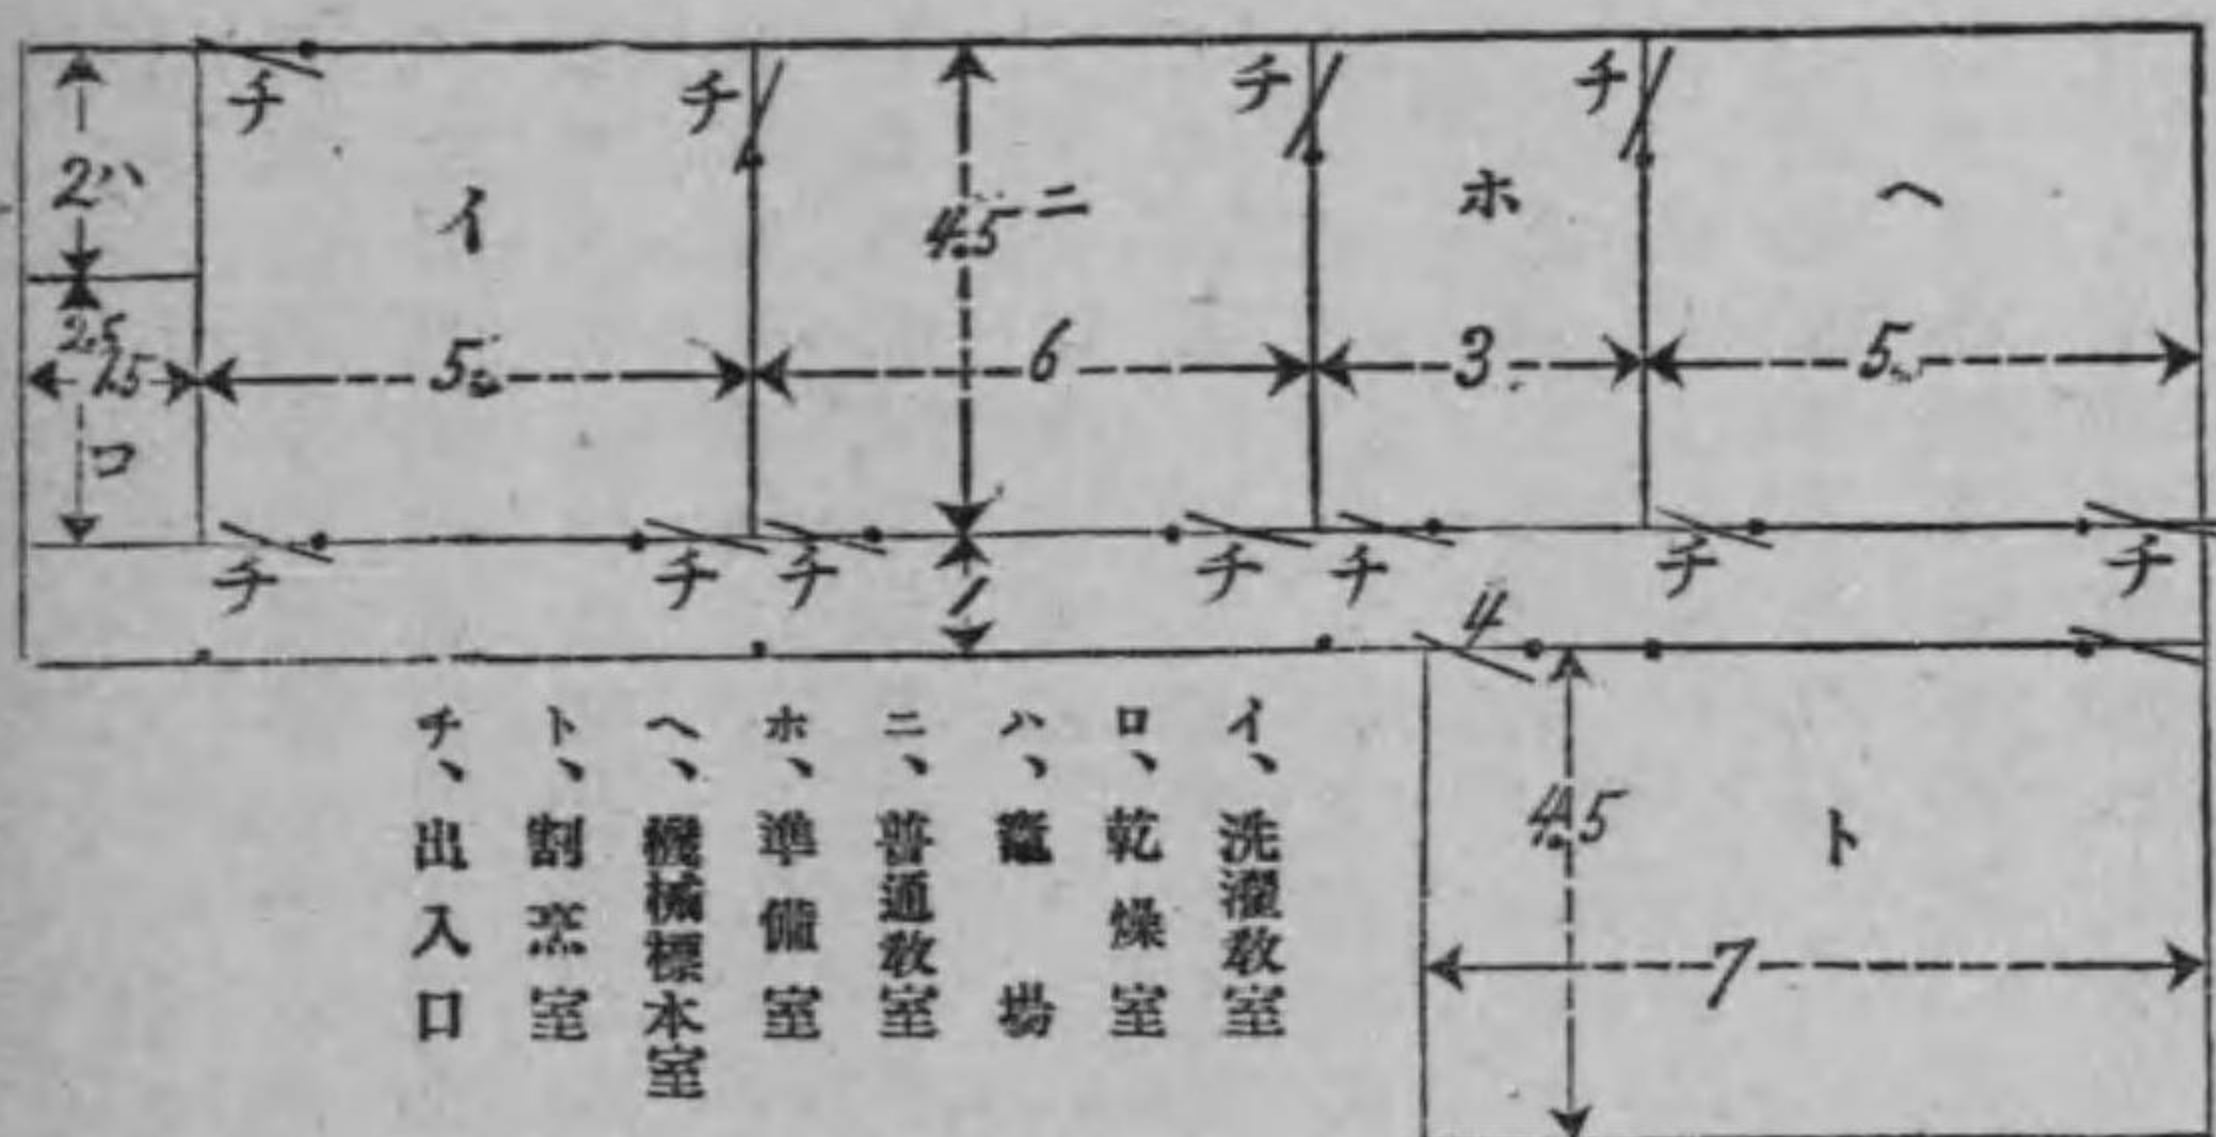 チ
チ
チ
チ
2
ハ
イ
4.5
ニ
ホ
ヘ
2.5
1.5
5
6
3
5
ロ
チ
チ
チ
チ
チ
チ
チ
1
4
4.5
ト
7
イ、洗濯教室
ロ、乾燥室
ハ、竈場
ニ、普通教室
ホ、準備室
ヘ、機械標本室
ト、割烹室
チ、出入口